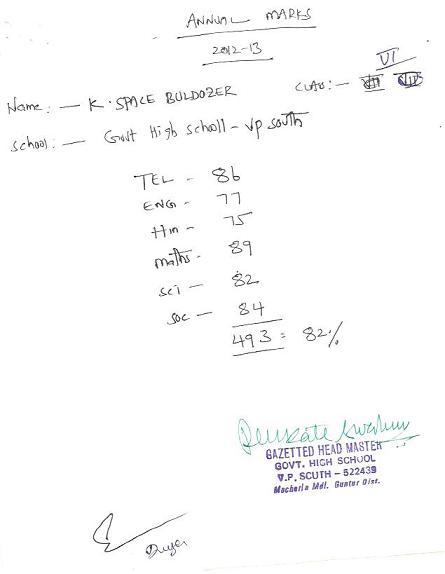 ANNUAL MARKS
2012-13
VI
Name: — K. SPACE BULDOZER CLASS:—
School: — Govt High scholl - VP south
TEL - 86
ENG - 77
Hin - 75
maths - 89
sci - 82
soc — 84
493 = 82%
GAZETTED HEAD MASTER
GOVT. HIGH SCHOOL
V.P. SOUTH - 522439
Macherla Mdl. Guntur Dist.